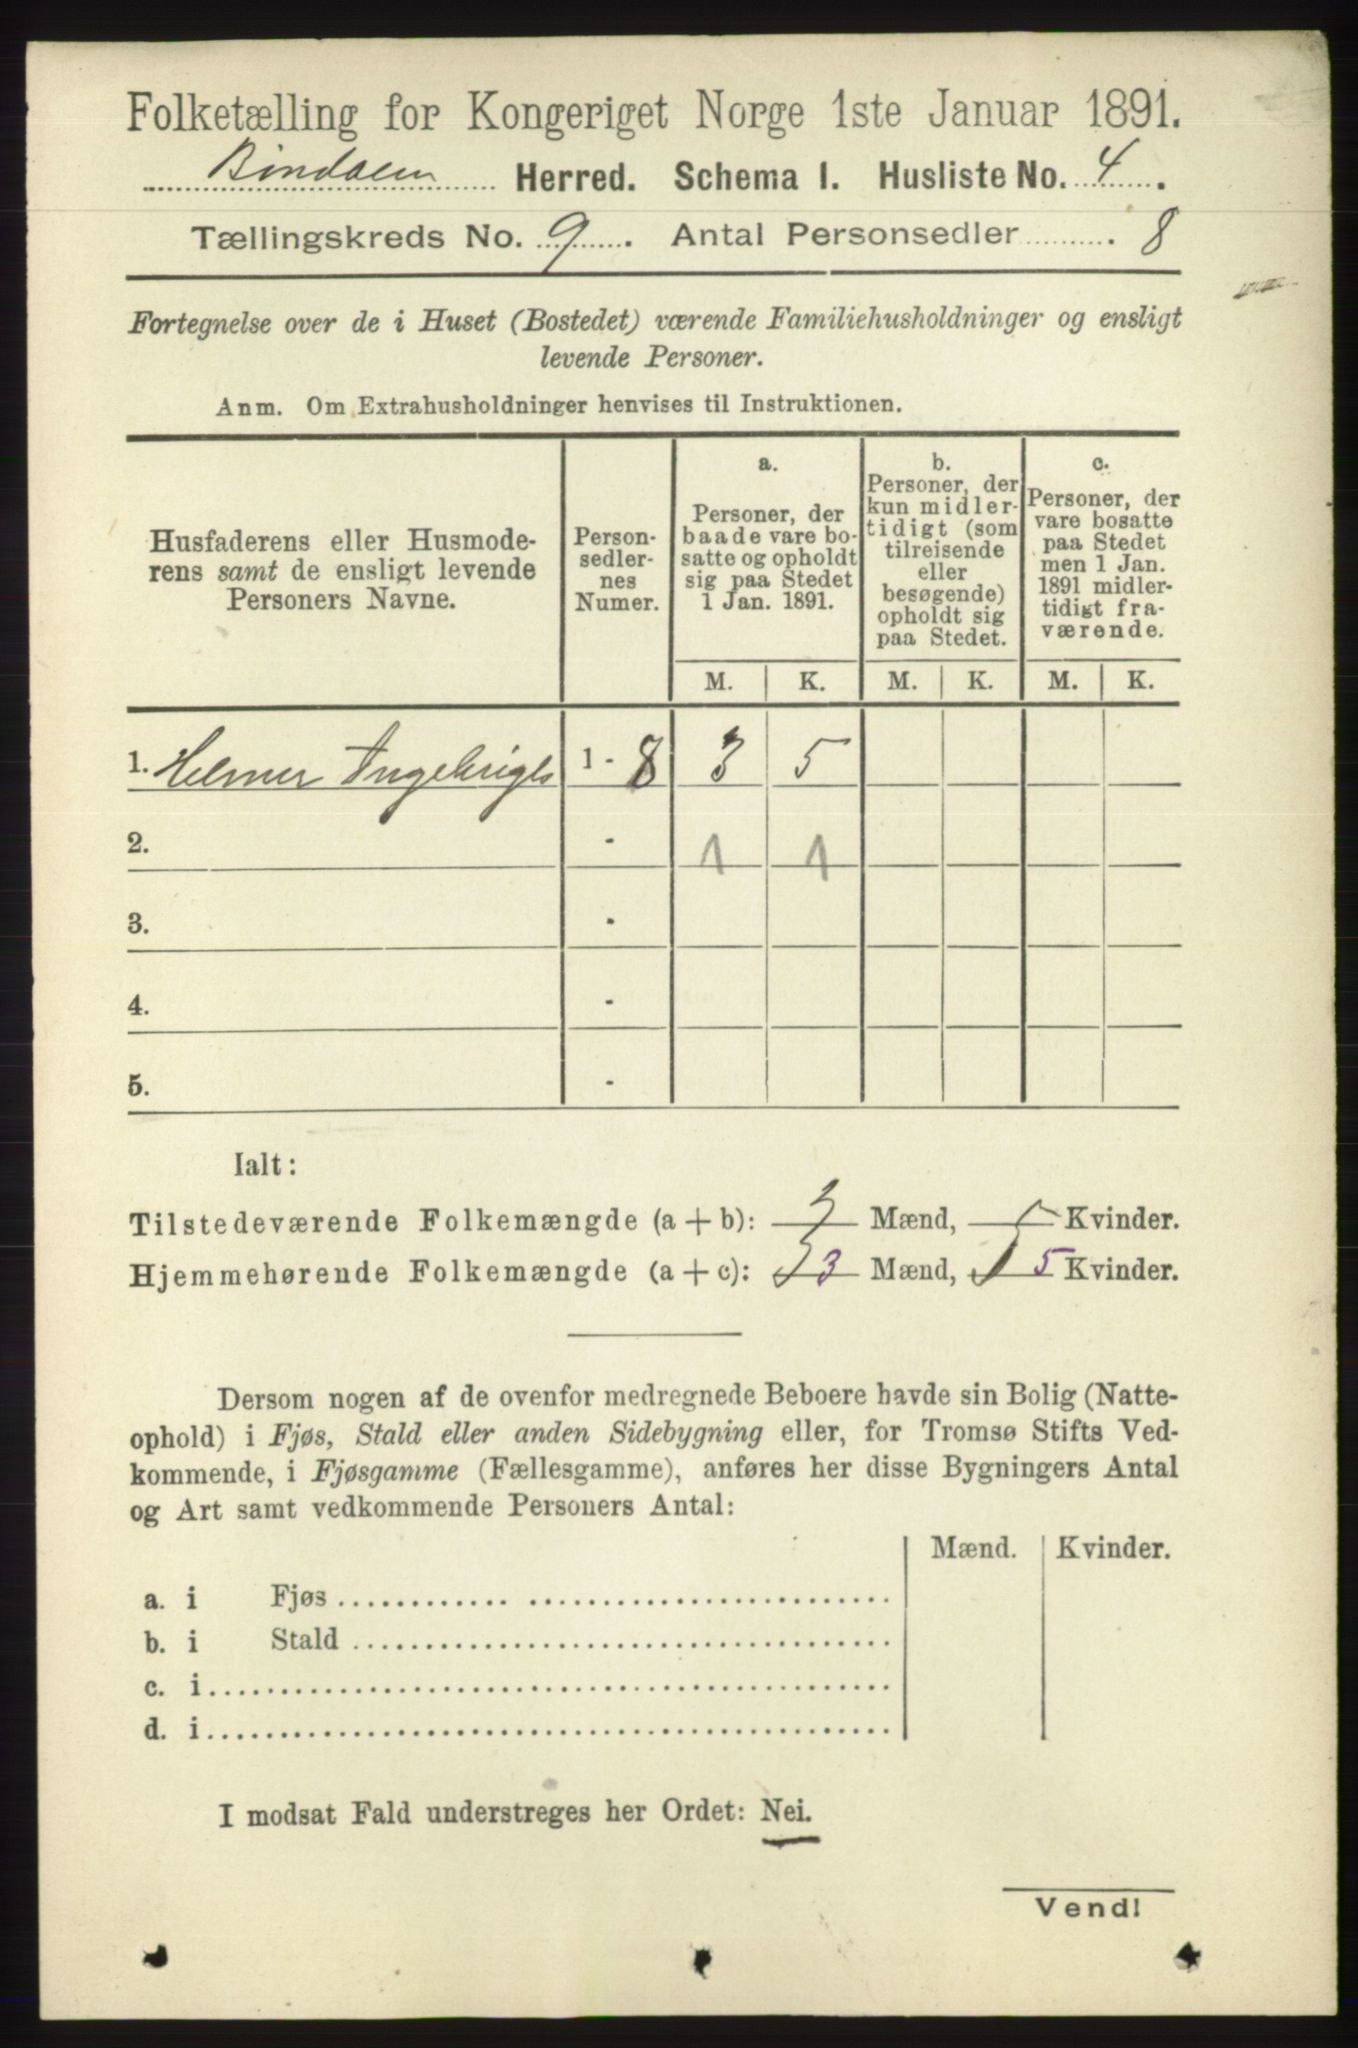 Folketælling for Kongeriget Norge 1ste Januar 1891.
Bindalen Herred. Schema I. Husliste No. 4.
Tællingskreds No. 9. Antal Personsedler . 8
Fortegnelse over de i Huset (Bostedet) værende Familiehusholdninger og ensligt
levende Personer.
Anm. Om Extrahusholdninger henvises til Instruktionen.
Husfaderens eller Husmode-
rens samt de ensligt levende
Personers Navne.
Person-
sedler-
nes
Numer.
a.
Personer, der
baade vare bo-
satte og opholdt
sig paa Stedet
1 Jan. 1891.
b.
Personer, der
kun midler-
tidigt (som
tilreisende
eller
besøgende)
opholdt sig
paa Stedet.
c.
Personer, der
vare bosatte
paa Stedet
men 1 Jan.
1891 midler-
tidigt fra-
værende.
M. K. M. K. M. K.
1. Helmer Ingebrigts 1 - 8 3 5
2. - 1 1
3. -
4. -
5. -
Ialt:
Tilstedeværende Folkemængde (a + b): 3 Mænd, 5 Kvinder.
Hjemmehørende Folkemængde (a + c): 3 Mænd, 5 Kvinder.
Dersom nogen af de ovenfor medregnede Beboere havde sin Bolig (Natte-
ophold) i Fjøs, Stald eller anden Sidebygning eller, for Tromsø Stifts Ved-
kommende, i Fjøsgamme (Fællesgamme), anføres her disse Bygningers Antal
og Art samt vedkommende Personers Antal:
Mænd. Kvinder.
a. i Fjøs
b. i Stald
c. i
d. i
I modsat Fald understreges her Ordet: Nei.
Vend!